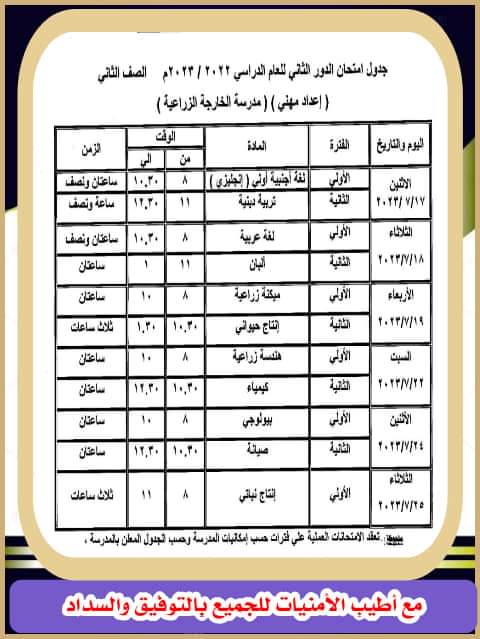 جدول امتحان الدور الثاني للعام الدراسي ٢٠٢٢ / ٢٠٢٣م الصف الثاني
( إعداد مهني ) ( مدرسة الخارجة الزراعية )
اليوم والتاريخ الفترة المادة الوقت الزمن
من الي
الاثنين ٢٠٢٣/٧/١٧ الأولي لغة أجنبية أولي ( إنجليزي ) ٨ ١٠,٣٠ ساعتان ونصف
الثانية تربية دينية ١١ ١٢,٣٠ ساعة ونصف
الثلاثاء ٢٠٢٣/٧/١٨ الأولي لغة عربية ٨ ١٠,٣٠ ساعتان ونصف
الثانية ألبان ١١ ١ ساعتان
الأربعاء ٢٠٢٣/٧/١٩ الأولي ميكنة زراعية ٨ ١٠ ساعتان
الثانية إنتاج حيواني ١٠,٣٠ ١,٣٠ ثلاث ساعات
السبت ٢٠٢٣/٧/٢٢ الأولي هندسة زراعية ٨ ١٠ ساعتان
الثانية كيمياء ١٠,٣٠ ١٢,٣٠ ساعتان
الأثنين ٢٠٢٣/٧/٢٤ الأولي بيولوجي ٨ ١٠ ساعتان
الثانية صيانة ١٠,٣٠ ١٢,٣٠ ساعتان
الثلاثاء ٢٠٢٣/٧/٢٥ الأولي إنتاج نباتي ٨ ١١ ثلاث ساعات
تعقد الامتحانات العملية علي فترات حسب إمكانيات المدرسة وحسب الجدول المعلن بالمدرسة ،
مع أطيب الأمنيات للجميع بالتوفيق والسداد